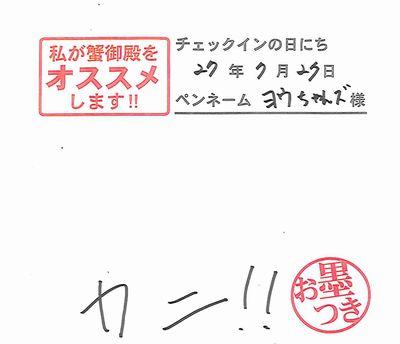 私が蟹御殿を
オススメ
します!!
チェックインの日にち
27年9月25日
ペンネーム ヨウちゃんズ様
カニ!!
お墨つき